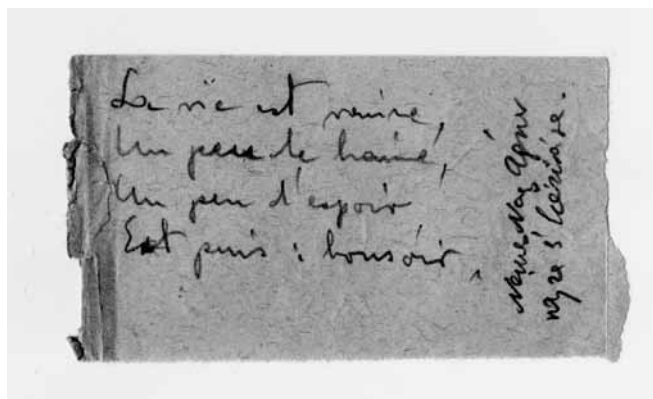 La vie est vaine,
Un peu de haine,
Un peu d'espoir
Et puis : bonsoir.
Nemes Nagy Ágnes